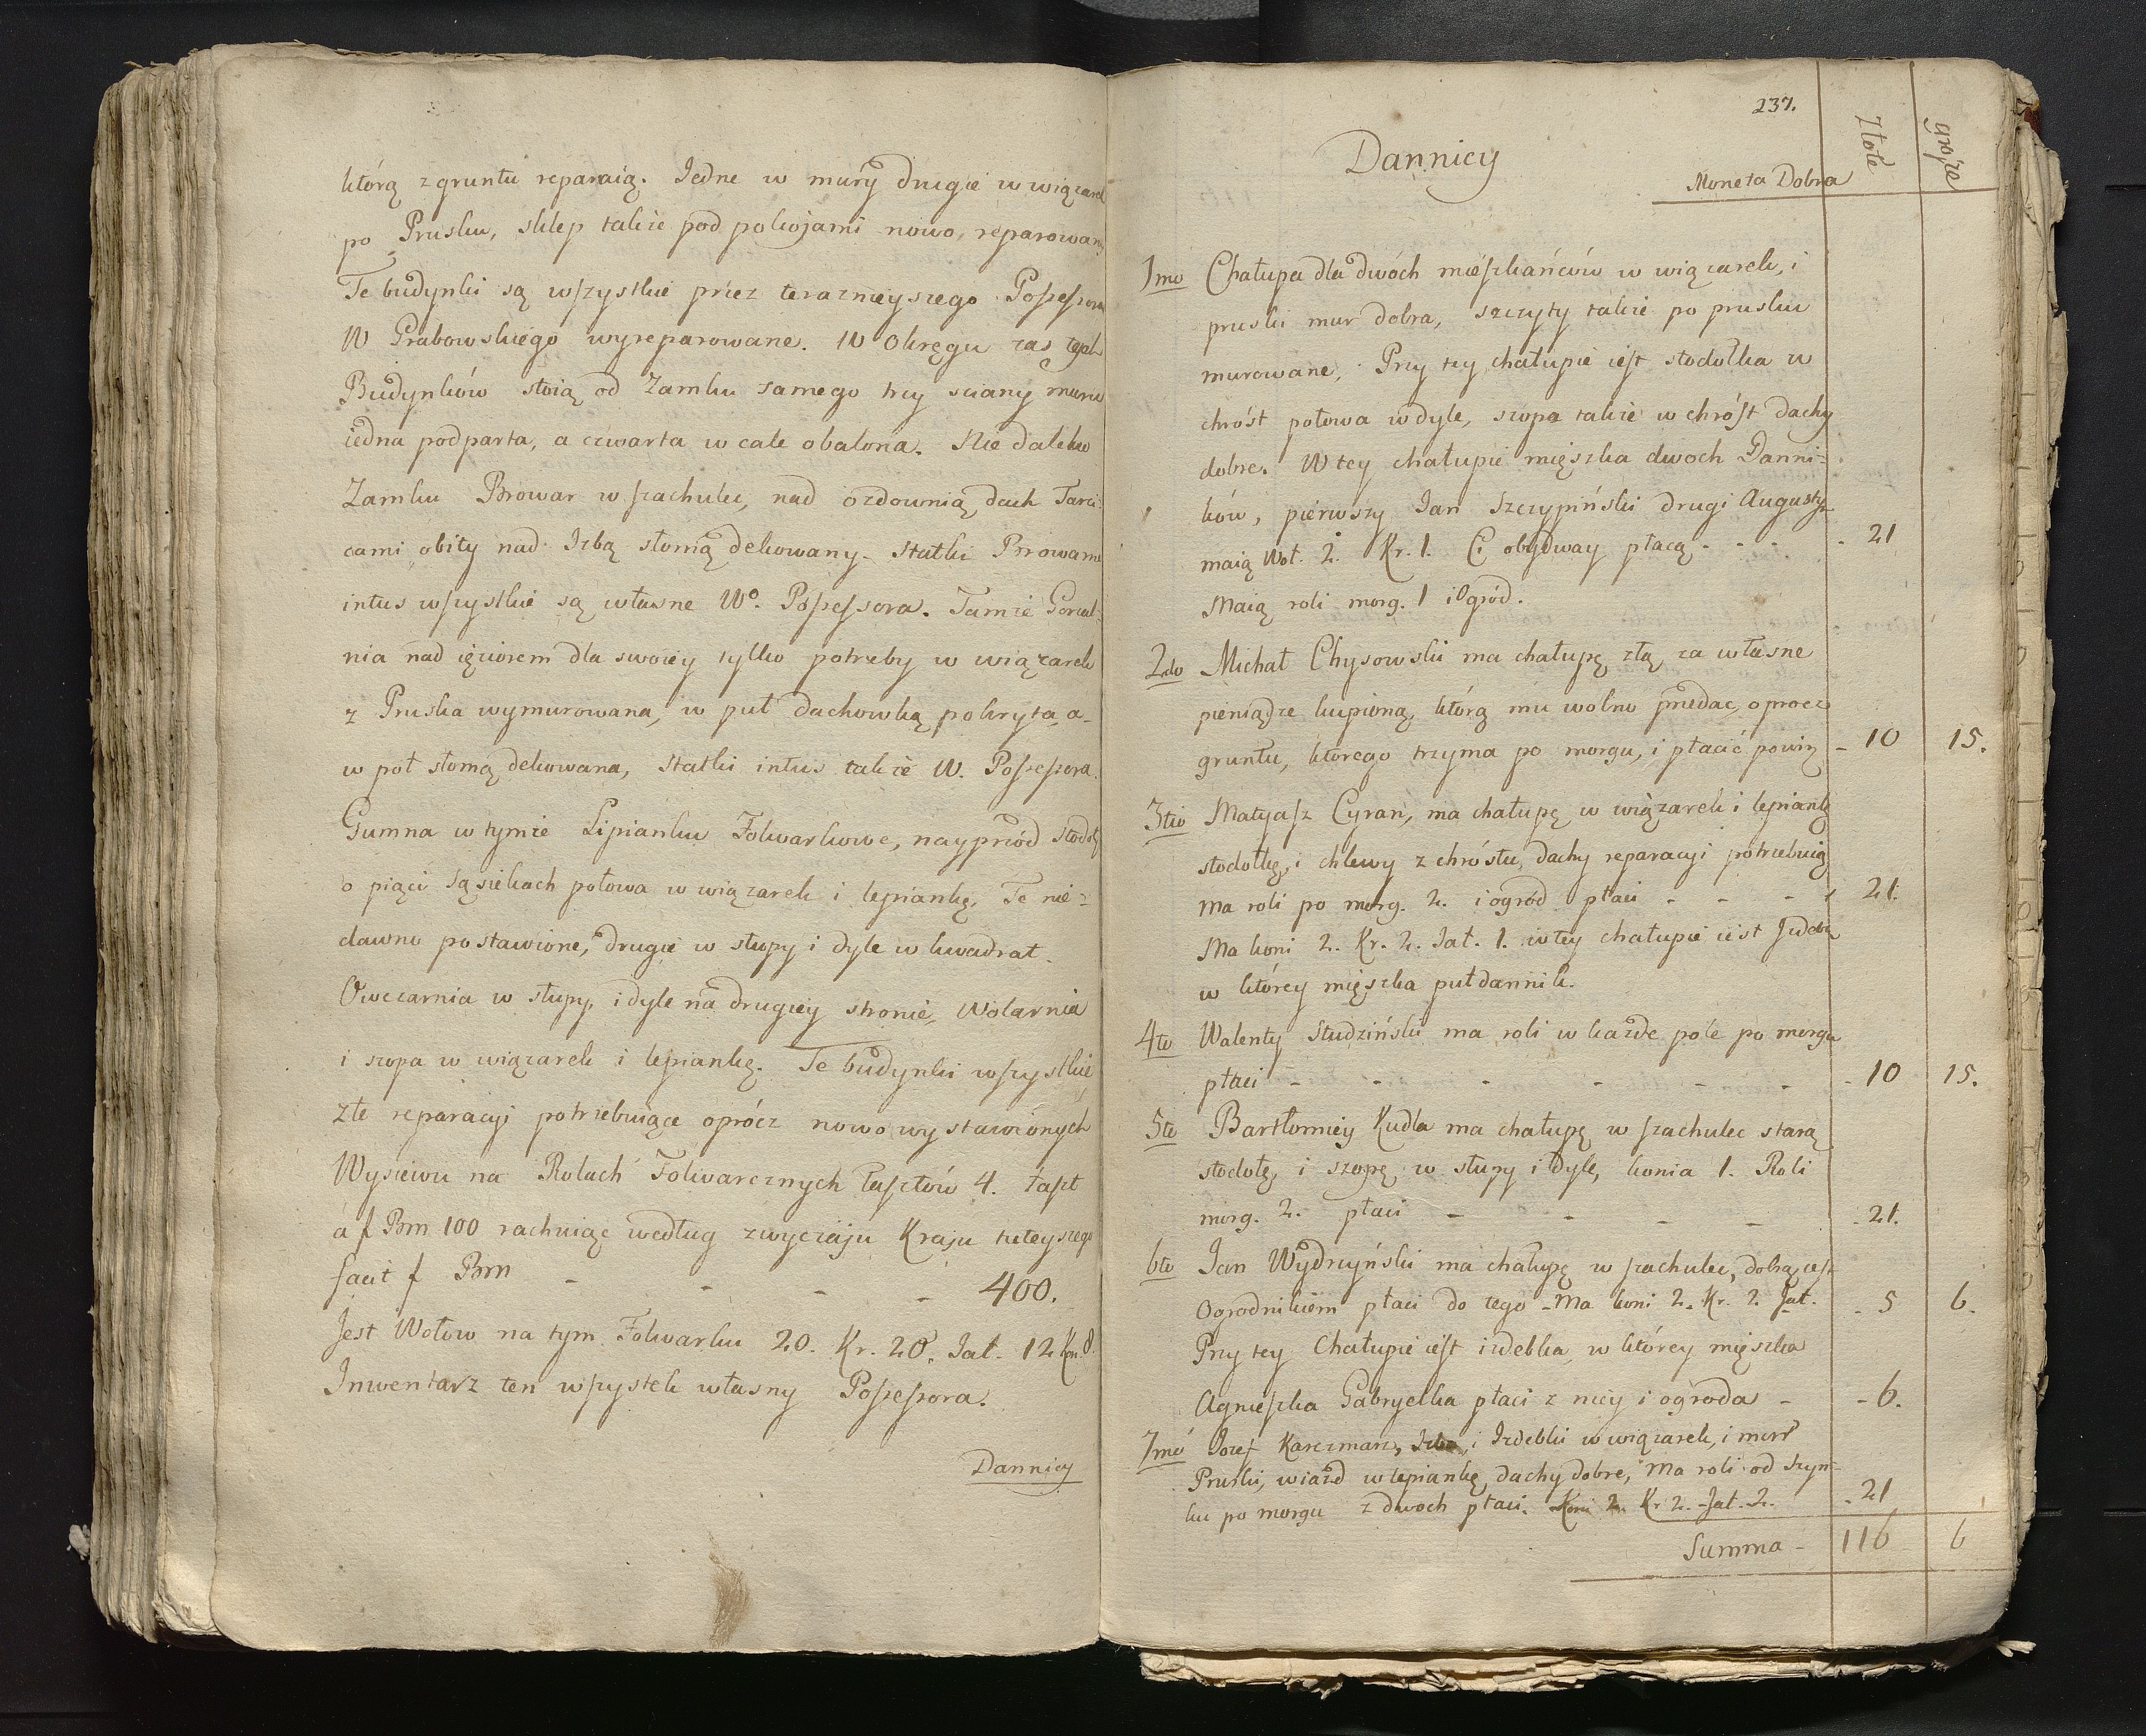 którą z gruntu reparaią. Jedne w mury drugie w wiązarek
po Prusku, sklep także pod pokojami nowo, reparowany
Te budynki są wszystkie przez teraznieyszego Possessora
W Grabowskiego wyreparowane. W Okręgu zas tych
Budynków stoią od Zamku samego trzy sciany muru
iedna podparta, a czwarta w cale obalona. Nie daleko
Zamku Browar w szachulec, nad ozdownią dach Tarci-
cami obity nad Izbą słomą dekowany. Statki Browarne
intus wszystkie są własne Wo. Possessora. Tamże Gorzal-
nia nad ięziorem dla swoiey tylko potrzeby w wiązarek
z Pruska wymurowana, w puł dachowką pokryta, a-
w poł słomą dekowana, statki intus także W. Possessora.
Gumna w tymże Lipianku Folwarkowe, nayprzód stodoły
o pięci sąsiekach połowa w wiązarek i lepiankę. Te nie-
dawno postawione, drugie w słupy i dyle w kwadrat.
Owczarnia w słupy, i dyle na drugiey stronie, Wolarnia
i szopa w wiązarek i lepiankę. Te budynki wszystkie
złe reparacyi potrzebuiące oprócz nowo wystawionych
Wysiewu na Rolach Folwarcznych Łasztów 4. łaszt
a f Brn 100 rachuiąc według zwyczaju Kraju tuteyszego
facit f Brn - - - - 400.
Jest Wołow na tym Folwarku 20. Kr. 20. Jał. 12 Kon. 8.
Inwentarz ten wszystek własny Possessora.
Dannicy
237.
Dannicy
Moneta Dobra
Złote
grosze
1mo Chałupa dla dwóch mieszkańców w wiązarek, i
pruski mur dobra, szczyty także po prusku
murowane, Przy tey chałupie iest stodołka w
chróst połowa w dyle, szopa także w chróst dachy
dobre. W tey chałupie mięszka dwoch Danni-
ków, pierwszy Jan Szczypiński drugi Augustyn
maią Woł. 2. Kr. 1. Ci obydway płacą - - - 21
Maią roli morg. 1 i Ogród.
2do Michał Chysowski ma chałupę złą za własne
pieniądze kupioną, którą mu wolno przedac, oprocz
gruntu, ktorego trzyma po morgu, i płacić powin - 10 15.
3tio Matyasz Cyran, ma chałupę w wiązarek i lepiankę
stodołkę, i chlewy z chróstu, dachy reparacyi potrzebuią
Ma roli po morg. 2. i ogród płaci - - - 21.
Ma koni 2. Kr. 2. Jał. 1. w tey chałupie iest Izdebka
w którey mięszka puł dannik.
4to Walenty Studziński ma roli w każde pole po morgu
płaci - - - - - - 10 15.
5to Bartłomiey Kudla ma chałupę w szachulec starą
stodołę, i szopę w słupy i dyle, konia 1. Roli
morg. 2. płaci - - - - 21.
6to Jan Wydrzyński ma chałupę w szachulec, dobrą iest
Ogrodnikiem płaci do tego - Ma koni 2. Kr. 2. Jał. - 5 6.
Przy tey Chałupie iest izdebka, w którey mięszka
Agnieszka Gabryelka płaci z niey i ogroda - - 6.
7mo Jozef Karczmarz, Izba, i Izdebki w wiązarek, i murr
Pruski, wiazd w lepiankę dachy dobre, Ma roli od Szyn-
ku po morgu z dwoch płaci. Koni 2. Kr 2. Jał. 2. - 21
Summa - 116 6